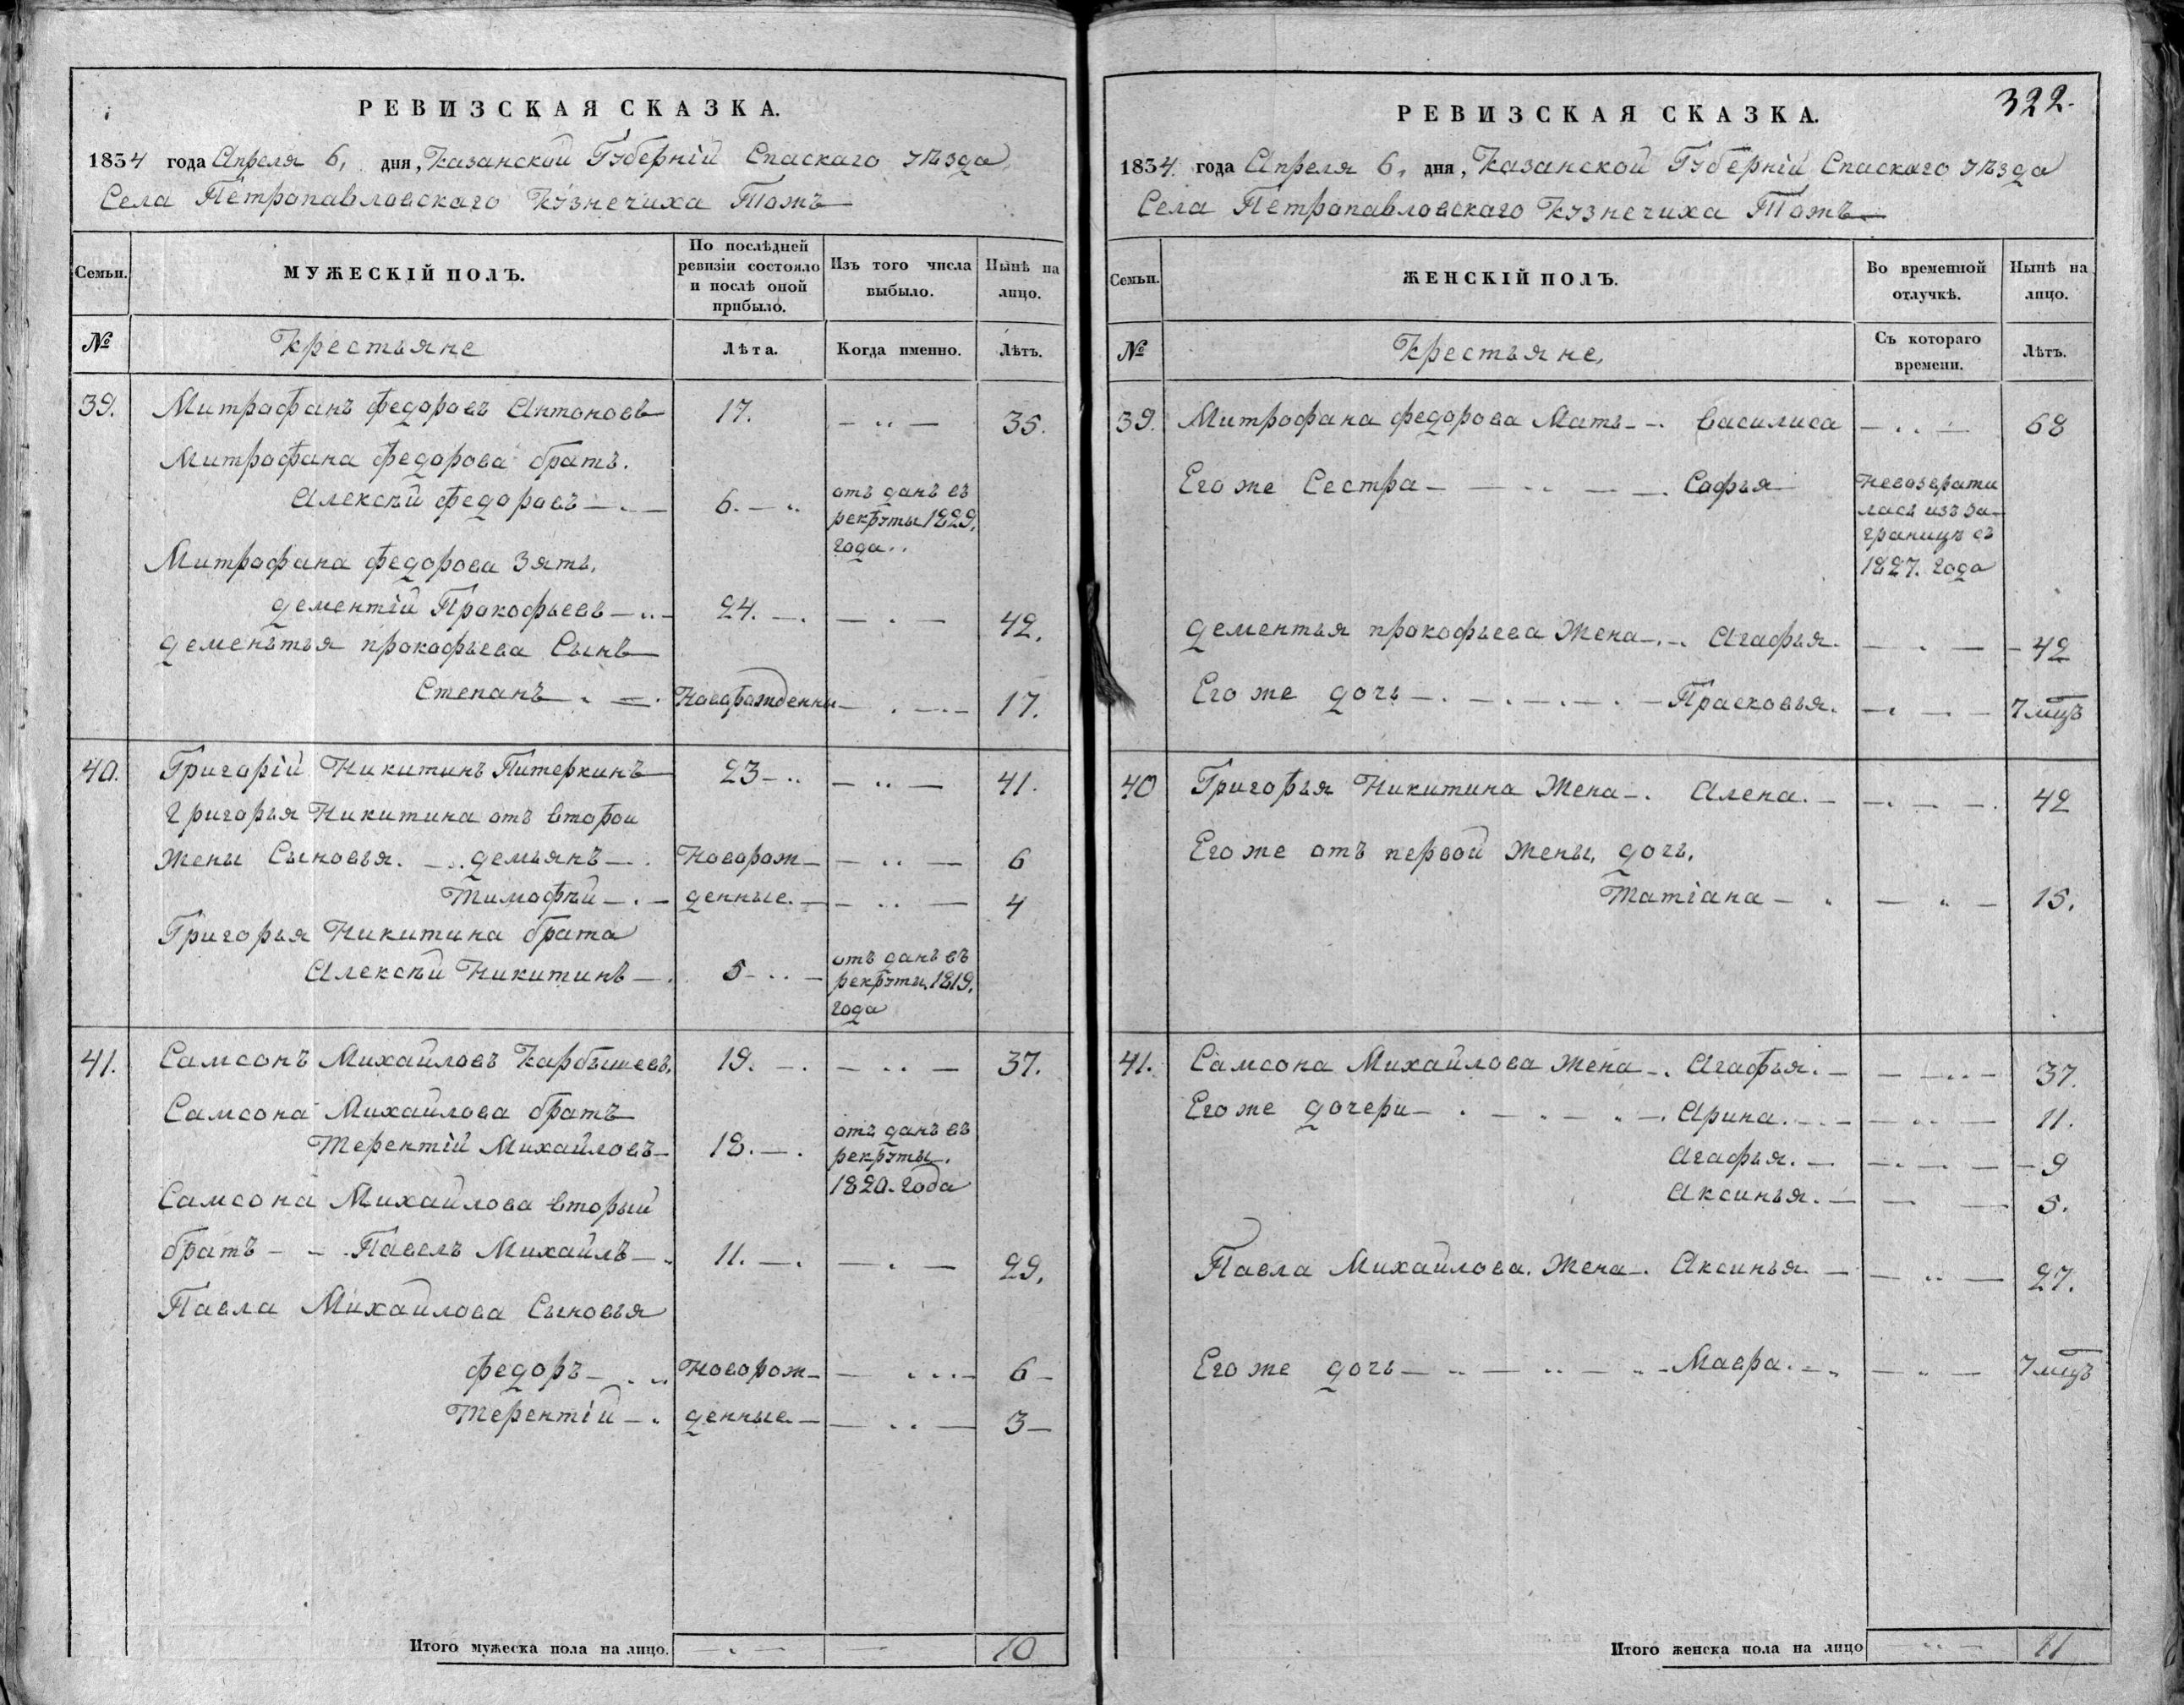 РЕВИЗСКАЯ СКАЗКА.
1834 года Апреля 6, дня, Казанской Губерній Спаскаго уѣзда
Села Петропавловскаго Кузнечиха Тожъ
Семьи. МУЖЕСКІЙ ПОЛЪ. По послѣдней ревизіи состояло и послѣ оной прибыло. Изъ того числа выбыло. Нынѣ на лицо.
№ Крестьяне Лѣта. Когда именно. Лѣтъ.
39. Митрофанъ Федоровъ Антоновъ 17. 35.
Митрофана Федорова братъ.
Алексѣй Федоровъ 6. отъ данъ въ рекруты 1829. года
Митрофана Федорова Зять,
Дементій Прокофьевъ 24. 42.
Дементья прокофьева Сынъ
Степанъ Новорожденны 17.
40. Григорій Никитинъ Питеркинъ 23 41.
Григорья Никитина отъ второи
Жены Сыновья. Демьянъ Новорож- 6
Тимофѣй денные. 4
Григорья Никитина брата
Алексѣй Никитинъ 5 отъ данъ въ рекруты 1819. года
41. Самсонъ Михайловъ Карбышевъ, 19. 37.
Самсона Михайлова братъ
Терентій Михайловъ 18. отъ данъ въ рекруты. 1820. года
Самсона Михайлова вторый
братъ Павелъ Михайлъ 11. 29.
Павла Михайлова Сыновья
Федоръ Новорож- 6
Терентій денные 3
Итого мужеска пола на лицо. 10
322.
РЕВИЗСКАЯ СКАЗКА.
1834. года Апреля 6, дня, Казанской Губерній Спаскаго уѣзда
Села Петропавловскаго Кузнечиха Тожъ
Семьи. ЖЕНСКІЙ ПОЛЪ. Во временной отлучкѣ. Нынѣ на лицо.
№ Крестьяне, Съ котораго времени. Лѣтъ.
39. Митрофана Федорова Мать Василиса 68
Его же Сестра Софья Невозврати лась изъ за-границъ въ 1827. года
Дементья прокофьева Жена Агафья. 42
Его же дочь Прасковья. 7 мцъ
40 Григорья Никитина Жена Алена. 42
Его же отъ первой Жены, дочь,
Татіана 15.
41. Самсона Михайлова Жена Агафья. 37.
Его же дочери Арина. 11.
Агафья. 9
Аксинья. 5.
Павла Михайлова. Жена Аксинья 27.
Его же дочь Мавра. 7 мцъ
Итого женска пола на лицо 11